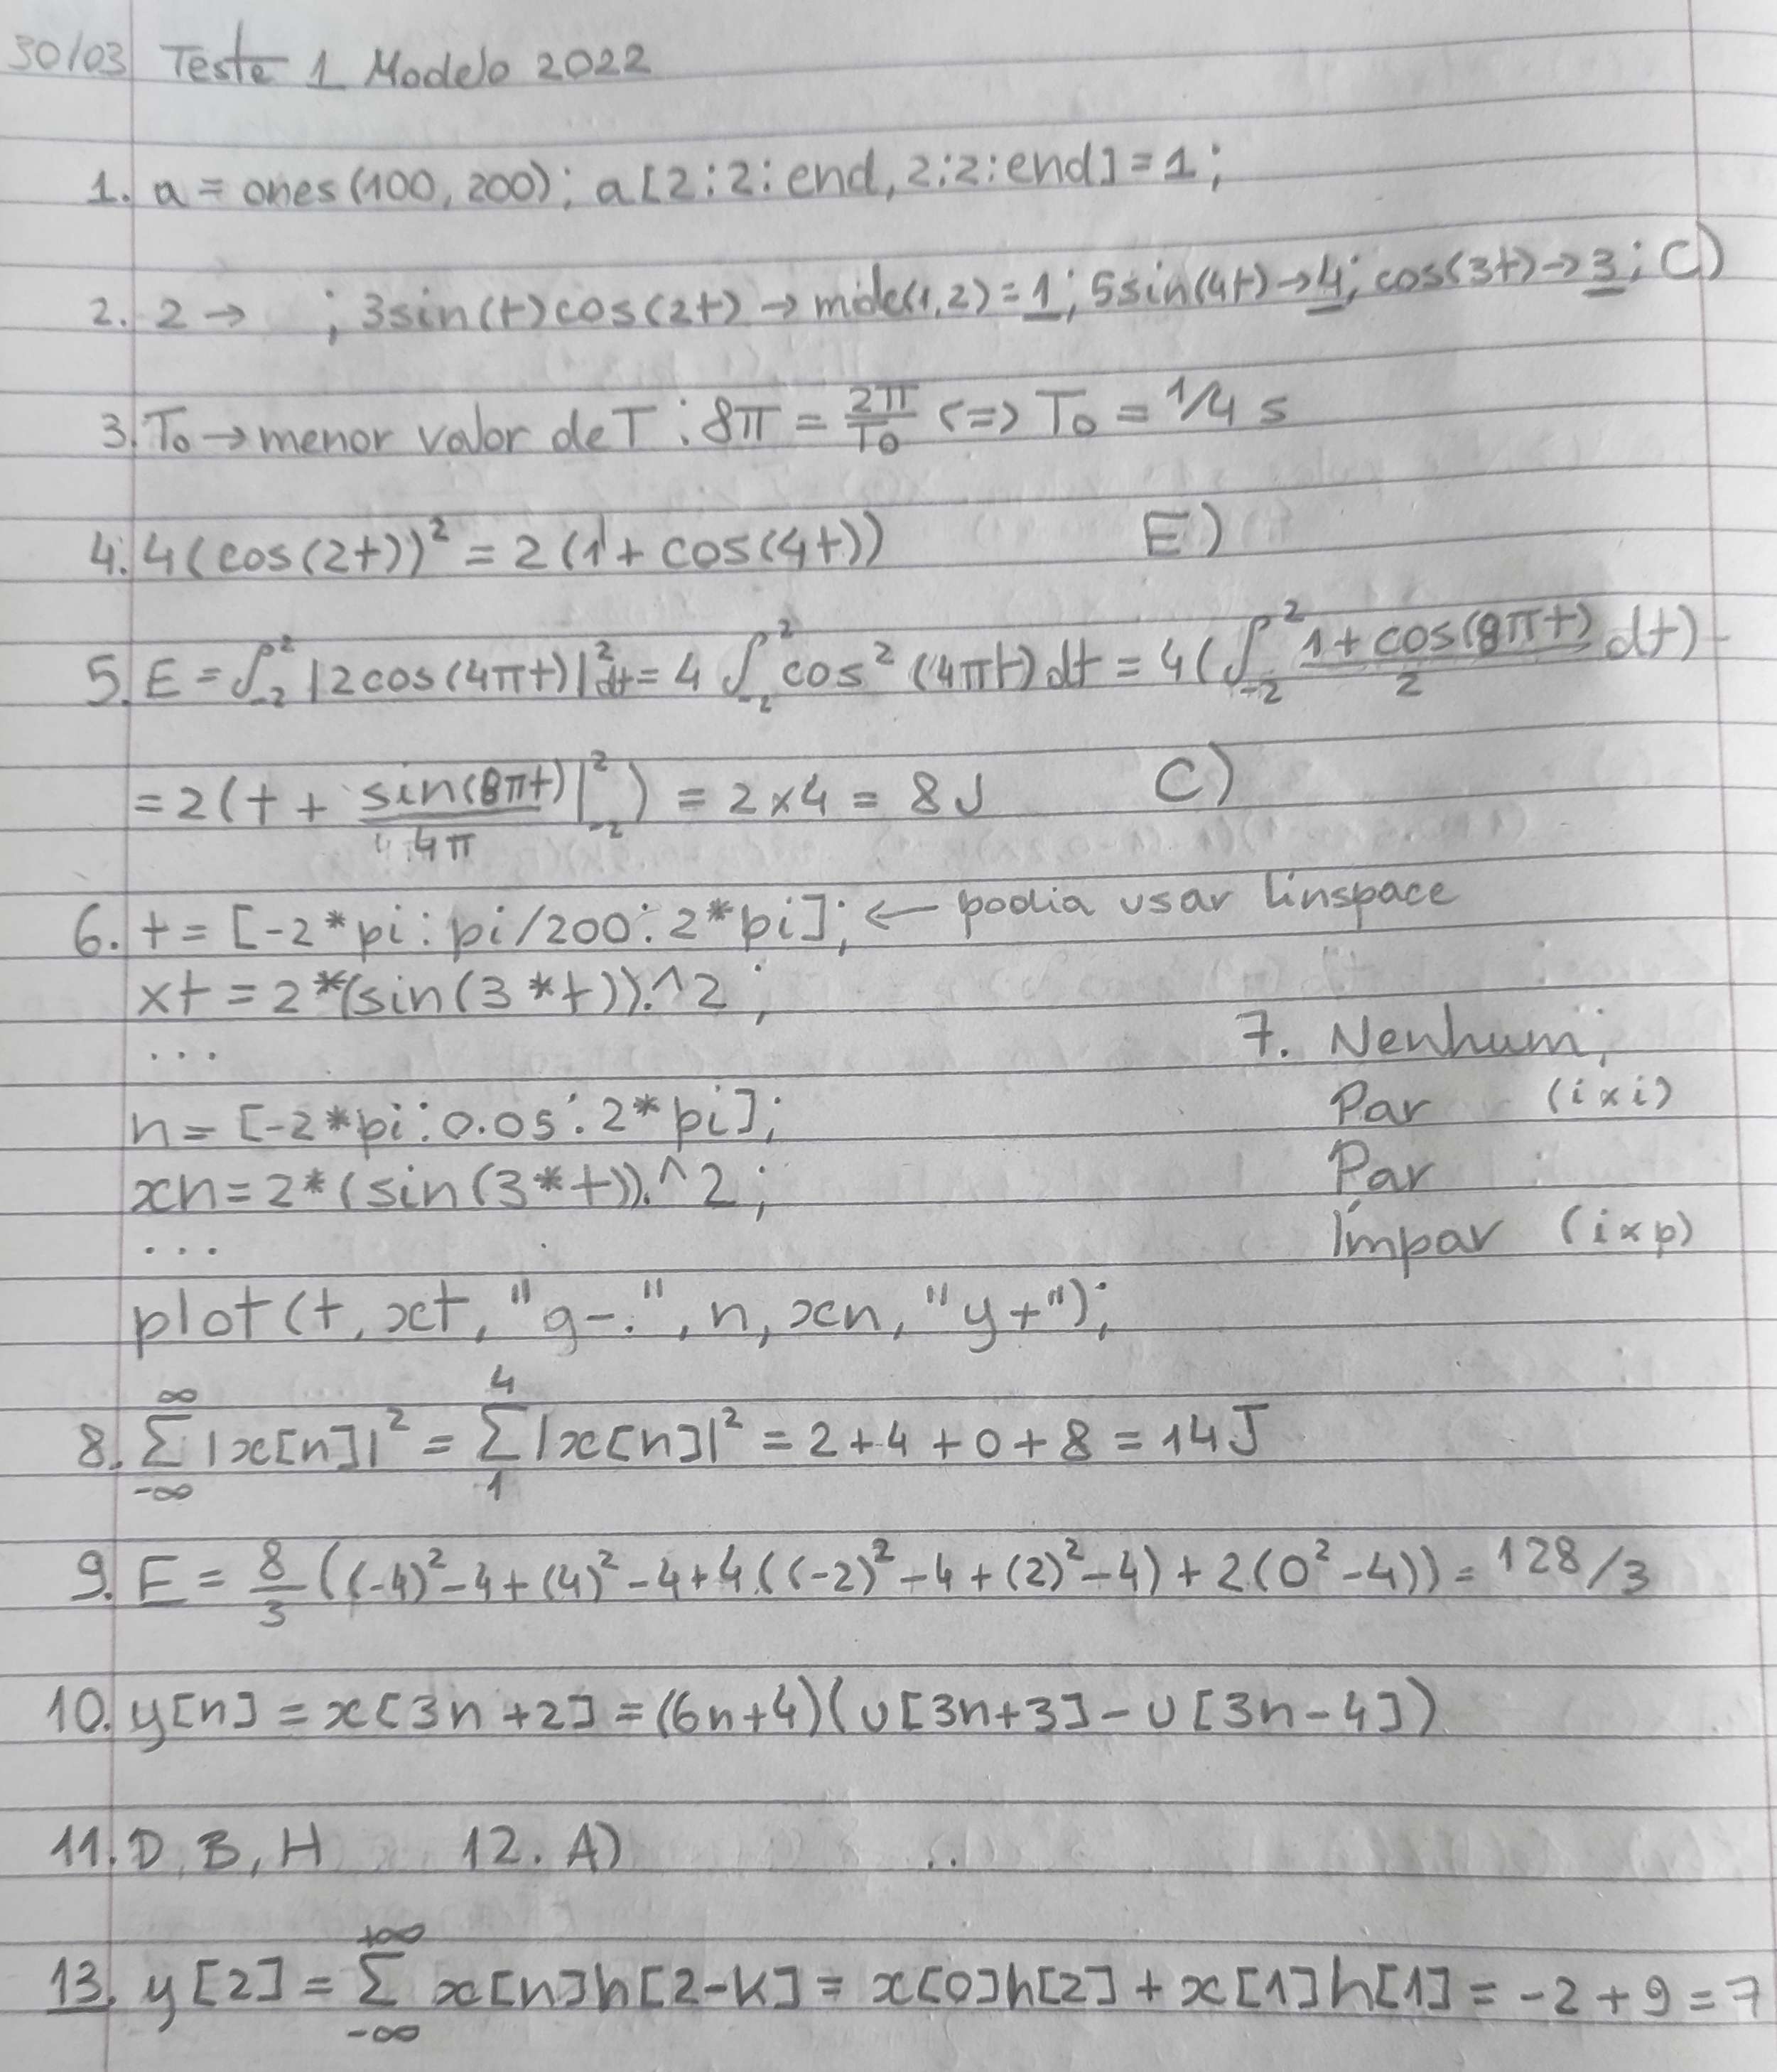 30/03 Teste 1 Modelo 2022
1. a = ones(100, 200); a[2:2:end, 2:2:end] = 1;
2. 2 → ; 3sin(t)cos(2t) → mdc(1,2) = 1; 5sin(4t) → 4; cos(3t) → 3; C)
3. T₀ → menor valor de T: 8π = 2π/T₀ <=> T₀ = 1/4 s
4. 4(cos(2t))² = 2(1 + cos(4t)) E)
5. E = ∫₋₂² |2cos(4πt)|² dt = 4 ∫₋₂² cos² (4πt) dt = 4(∫₋₂² (1 + cos(8πt))/2 dt) -
= 2(t + sin(8πt)/4π |₋₂²) = 2 × 4 = 8J C)
6. t = [-2*pi : pi/200 : 2*pi]; ← podia usar linspace
xt = 2*(sin(3*t)).^2;
...
7. Nenhum;
n = [-2*pi : 0.05 : 2*pi];
Par (i×i)
xn = 2*(sin(3*t)).^2;
Par
...
Ímpar (i×p)
plot(t, xt, "g-.", n, xn, "y+");
8. ∑₋∞^∞ |x[n]|² = ∑₁⁴ |x[n]|² = 2 + 4 + 0 + 8 = 14J
9. E = 8/3 ((-4)² - 4 + (4)² - 4 + 4((-2)² - 4 + (2)² - 4) + 2(0² - 4)) = 128/3
10. y[n] = x[3n + 2] = (6n+4)(u[3n+3] - u[3n-4])
11. D, B, H 12. A)
13. y[2] = ∑₋∞^+∞ x[n]h[2-k] = x[0]h[2] + x[1]h[1] = -2 + 9 = 7